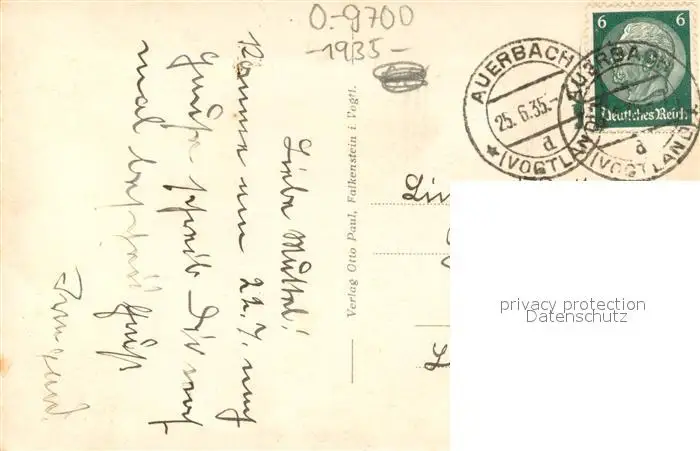 O-9700
-1935-
6 6
Deutsches Reich
AUERBACH
25.6.35.-
d
(VOGTLAND)
AUERBACH
d
(VOGTLAND)
Verlag Otto Paul, Falkenstein i. Vogtl.
Liebe Muttel!
Komme am 22.7. nach
Hause schreib Dir noch
mal Gruß
privacy protection
Datenschutz